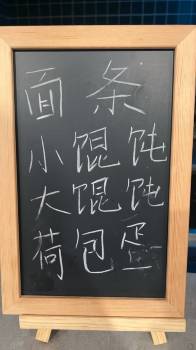 面条
小馄饨
大馄饨
荷包蛋